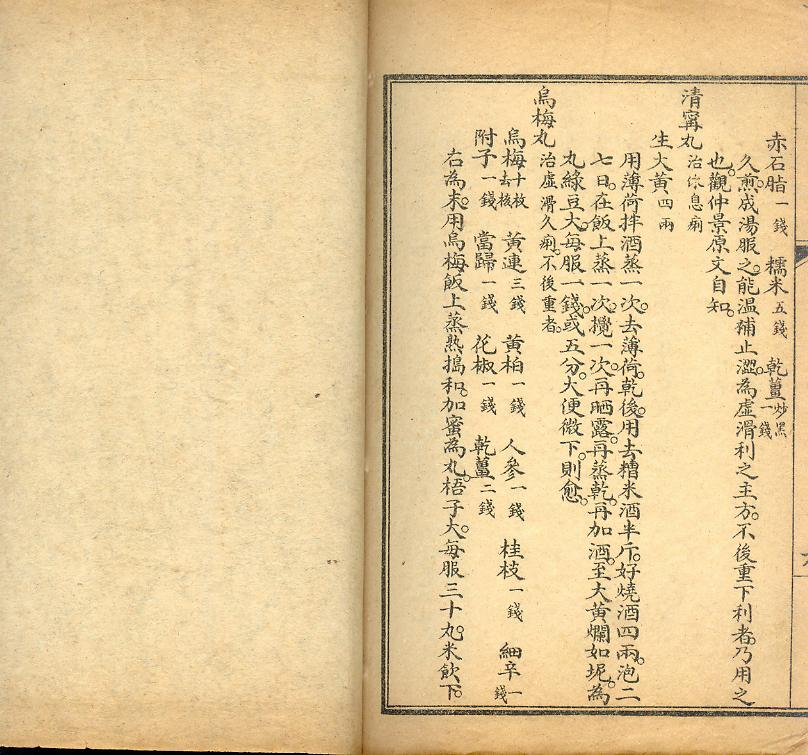 赤石脂一錢　糯米五錢　乾薑炒黑一錢
久煎成湯服之。能溫補止澀。為虛滑利之主方。不後重下利者。乃用之
也。觀仲景原文自知。
清寧丸治休息痢
生大黃四兩
用薄荷拌酒蒸一次。去薄荷。乾後。用去糟米酒半斤。好燒酒四兩。泡二
七日。在飯上蒸一次。攪一次。再晒露。再蒸乾。再加酒。至大黃爛如坭。為
丸綠豆大。每服一錢。或五分。大便微下。則愈。
烏梅丸治虛滑久痢。不後重者。
烏梅十枚去核　黃連三錢　黃柏一錢　人參一錢　桂枝一錢　細辛一錢
附子一錢　當歸一錢　花椒一錢　乾薑二錢
右為末。用烏梅飯上蒸熟搗和。加蜜為丸。梧子大。每服三十丸。米飲下。